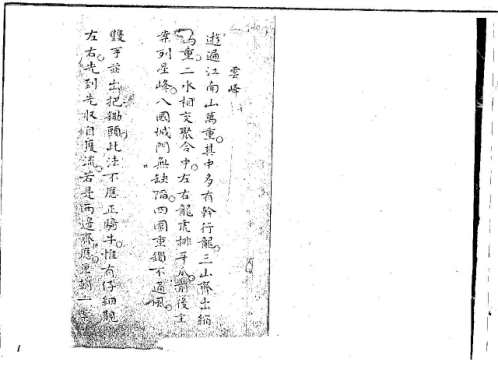 雲峰
遊遍江南山萬重。其中多有幹行龍。三山齊出
重。二水相交聚合中。左右龍虎排牙爪。前後主
案列星峰。八國城門無缺陷。四圍重鎖不通風。
雙手並出把鋤頭。此法不應正騎牛。惟有仔細
左右。先到先收自護流。若是兩邊齊應
1